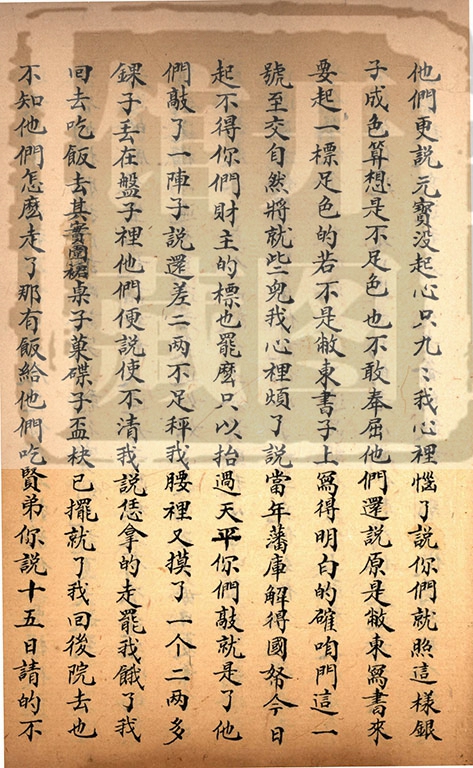 他們更說元寶没起心只九〻我心裡惱了說你們就照這樣銀
子成色算想是不足色也不敢奉屈他們還說原是敝東寫書來
要起一標足色的若不是敝東書子上寫得明白的確咱門這一
號至交自然將就些兒我心裡煩了說當年藩庫解得國帑今日
起不得你們財主的標也罷麽只以抬過天平你們敲就是了他
們敲了一陣子說還差二两不足秤我腰裡又摸了一个二两多
錁子丢在盤子裡他們便說使不清我說恁拿的走罷我餓了我
回去吃飯去其實圍裙桌子菓碟子盃柣已擺就了我回後院去也
不知他們怎麽走了那有飯給他們吃賢弟你說十五日請的不